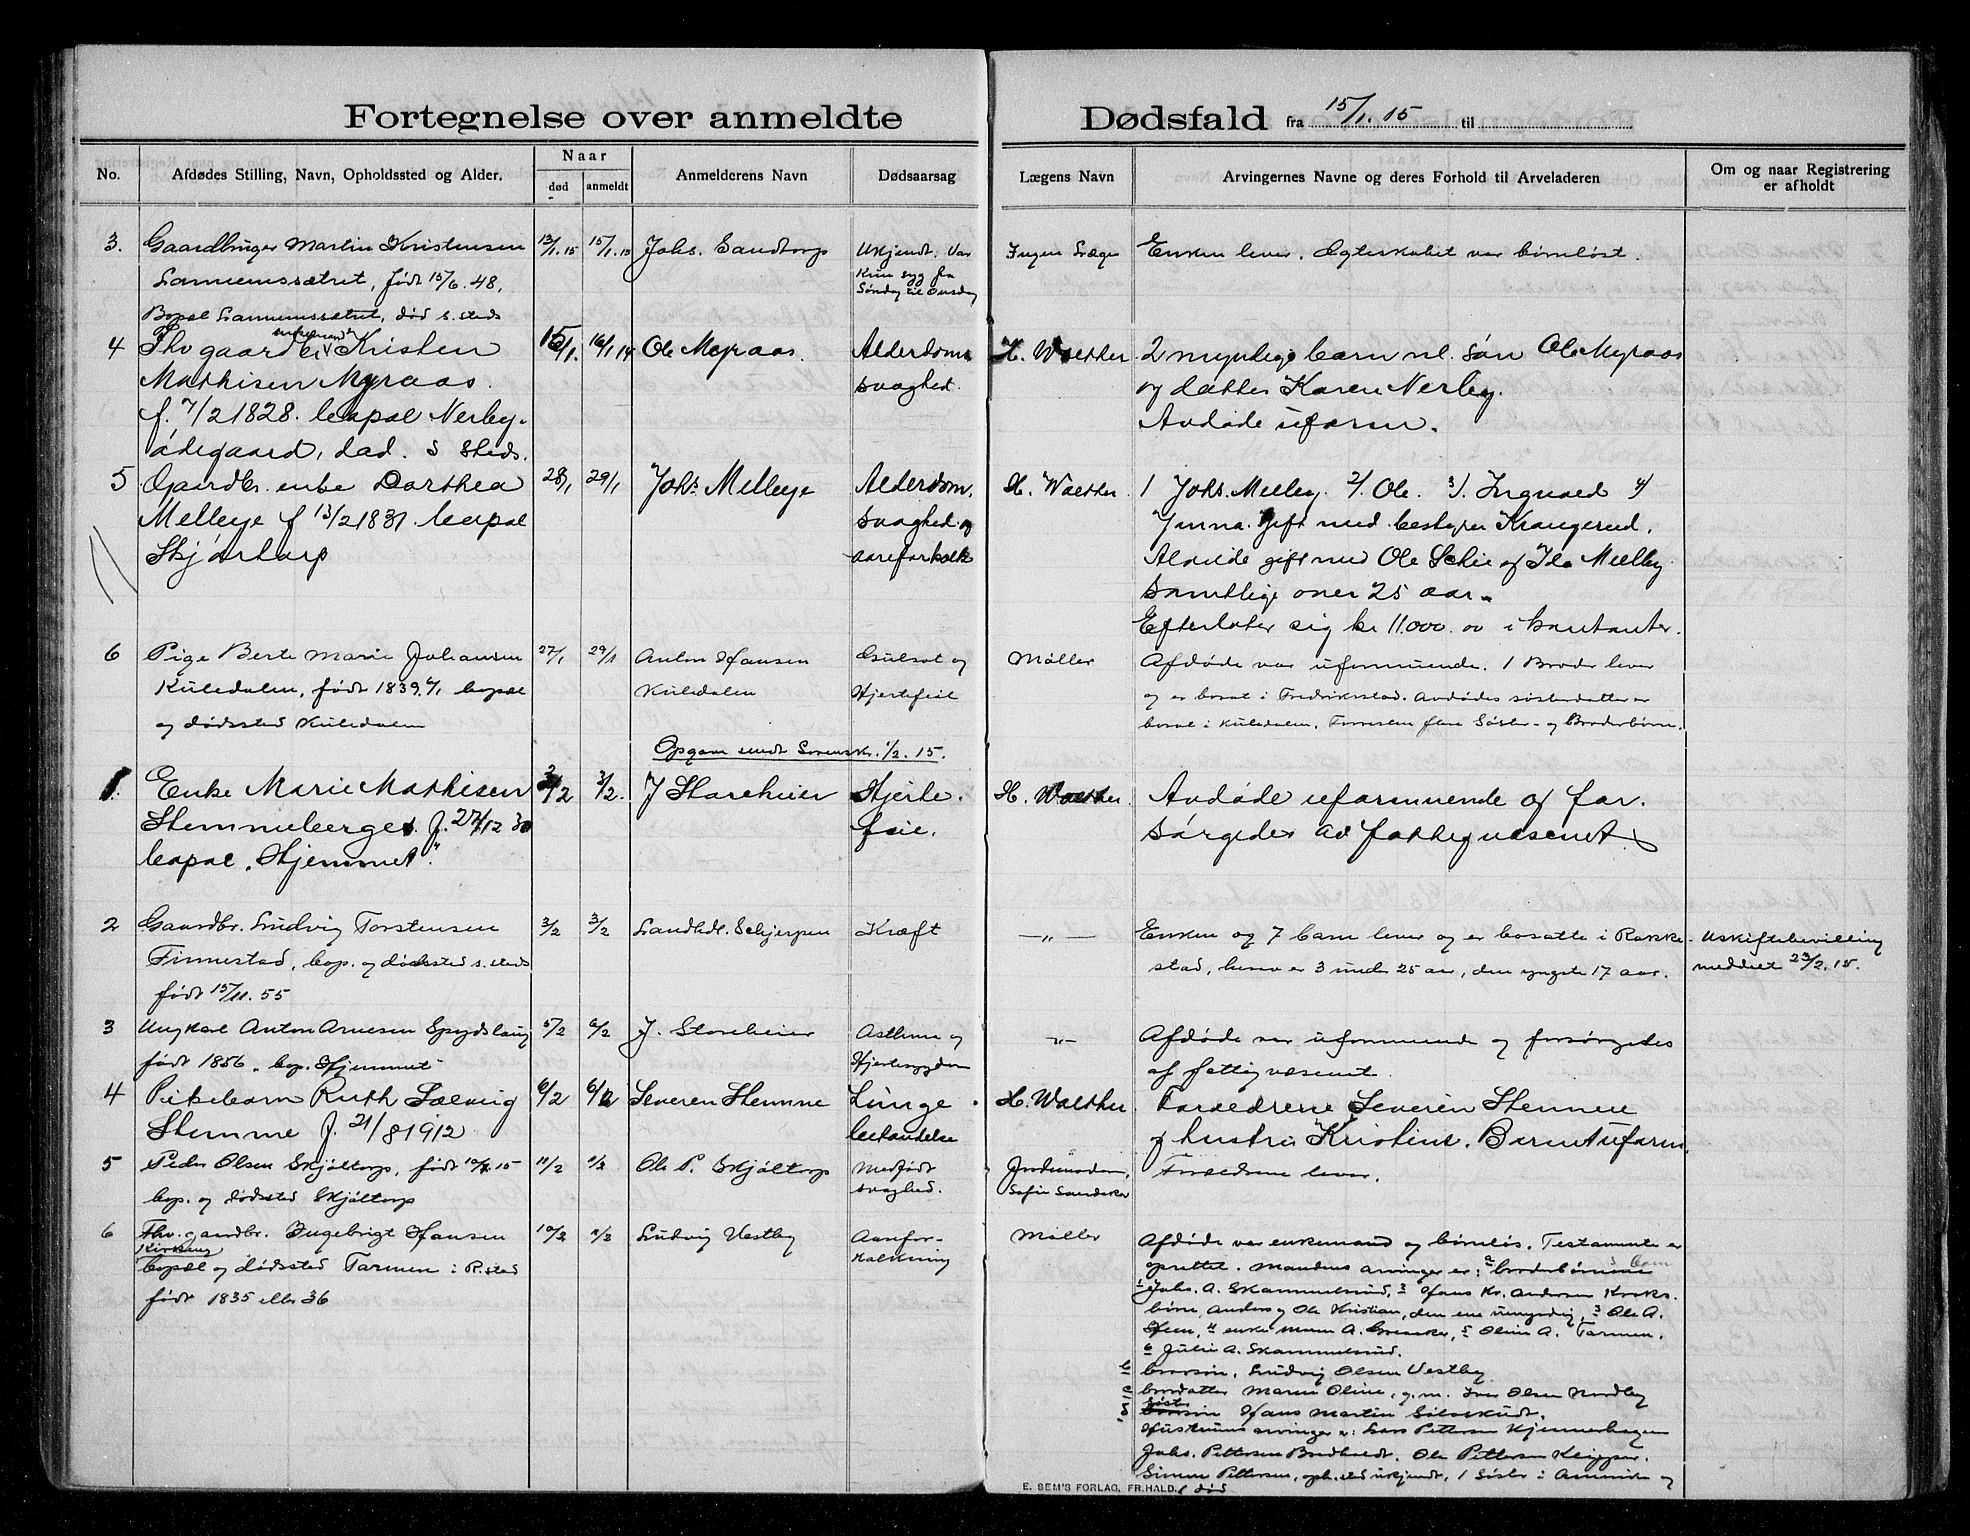 Fortegnelse over anmeldte Dødsfald fra 15/1. 15 til
No. Afdødes Stilling, Navn, Opholdssted og Alder. Naar død anmeldt Anmelderens Navn Dødsaarsag Lægens Navn Arvingernes Navne og deres Forhold til Arveladeren Om og naar Registrering er afholdt
3. Gaardbruger Martin Kristensen 13/1.15 15/1.15 Johs. Sandtorp Ukjendt. Var Ingen Læge Enken lever. Egteskabet var børnløst.
født 15/6. 48, kun syg fra
Bopæl død s. steds Søndag til Onsdag
enkemand
4 Fhv gaardbr. Kristen 15/1. 16/1 14 Ole Myraas. Alderdoms H. Walther 2 myndige barn nl. søn Ole Myraas
Mathisen Myraas. svaghed. og datter Karen Nerby.
f. 7/2 1828. bopæl Nerby- Avdøde uform.
ødegaard, død. s steds.
5 Gaardbr. enke Dorthea 28/1 29/1 Johs. Mellbye Alderdom. H. Walther. 1 Johs. Melleby. 2/. Ole. 3/. Ingvald 4/
Mellbye f 13/2 1831. bopæl svaghed og gift med bestyrer Krangerud,
Skjørtorp aareforkalk gift med Ole Schie og Ida Melleby
samtlige over 25 aar.
Efterlater sig kr 11.000.00 i kontanter.
6 Pige Berte Marie Johansen 27/1 29/1 Anton Hansen Gulsot og Møller Afdøde var uformuende. 1 Broder lever
Kuledalen, født 1839. bopæl Kuledalen Hjertefeil og er bosat i Fredriksstad. Avdødes søsterdatter er
og dødssted Kuledalen bosat i Kuledalen. Forresten flere Søster- og Broderbørn.
Opgave sendt Sorenskr. 1/2. 15.
1. Enke Marie Mathisen 2/2 3/2. J Storeheier Hjerte- H. Walther. Avdøde uformuende og for-
Stemmeberget. f. 27/12 30 feil. sørgedes av fattigvæsenet
bopæl "Hjemmet".
2 Gaardbr. Ludvig Torstensen 3/2 3/2 Landhdl. Schjerpen Kræft — " — Enken og 7 barn lever og er bosatte i Rakke- Uskiftebevilling
Finnestad, bop. og dødssted s. steds stad, herav er 3 under 25 aar, den yngste 17 aar. meddelt 23/2. 15.
født 15/11. 55
3 Ungkarl Anton Arnesen Spydslaug 5/2 6/2 J. Storeheier Asthma og — " — Afdøde var uformuende og forsørgedes
født 1856. bop. Hjemmet Hjertesygdom af fattigvæsenet.
4 Pikebarn Ruth Solveig 6/2 6/2 Severin Stemme Lunge H. Walther. Foreldrene Severin Stemme
Stemme f. 21/8 1912 betændelse og hustru Kristine. Barnet uform.
5 Peder Olsen Skjöltorp, født 10/2 15 11/2 11/2 Ole P. Skjöltorp Medfødt Jordemoderen, Foreldrene lever.
bop. og dødssted Skjöltorp svaghed. Sofie
6 Fhv. gaardbr. Ingebrigt Hansen 10/2 11/2 Ludvig Vestby Aarefor- Møller Afdøde var enkemand og børnløs. Testamente er
Kirkeng
bopæl og dødssted Tarmen i R.stad kalkning oprettet. Mandens arvinger er: a broderbørnene
født 1835 eller 36 1 Johs. A. Skammelsrud, 2 Hans Kr. Andersen Kroks
børn, Anders og Ole Kristian, den ene umyndig, 3 Ole A.
4 enke A. 5 Oline A. Tarmen.
6 Julie A. Skammelsrud.
b brorsøn, Ludvig Olsen Vestby
brordatter Maren Oline, g. m. Iver Olsen Nordby
søster
søn Hans Martin
Hustruens arvinger er: Lars Pettersen
Johs. Pettersen Ole Pettersen
Simen Pettersen, oph. sted ukjendt, 1 Søster i Amerika og
1 død
E. SEM'S FORLAG, FR.HALD.